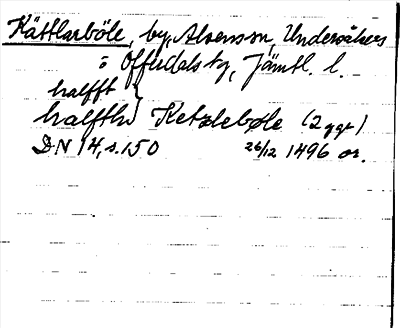 Kättlarböle, by, Alsensn, Undersåkers
i Offerdals tg, Jämtl. l.
halfft }
halfth } Ketzleböle (2 ggr)
DN 14, s. 150 26/12 1496 or.